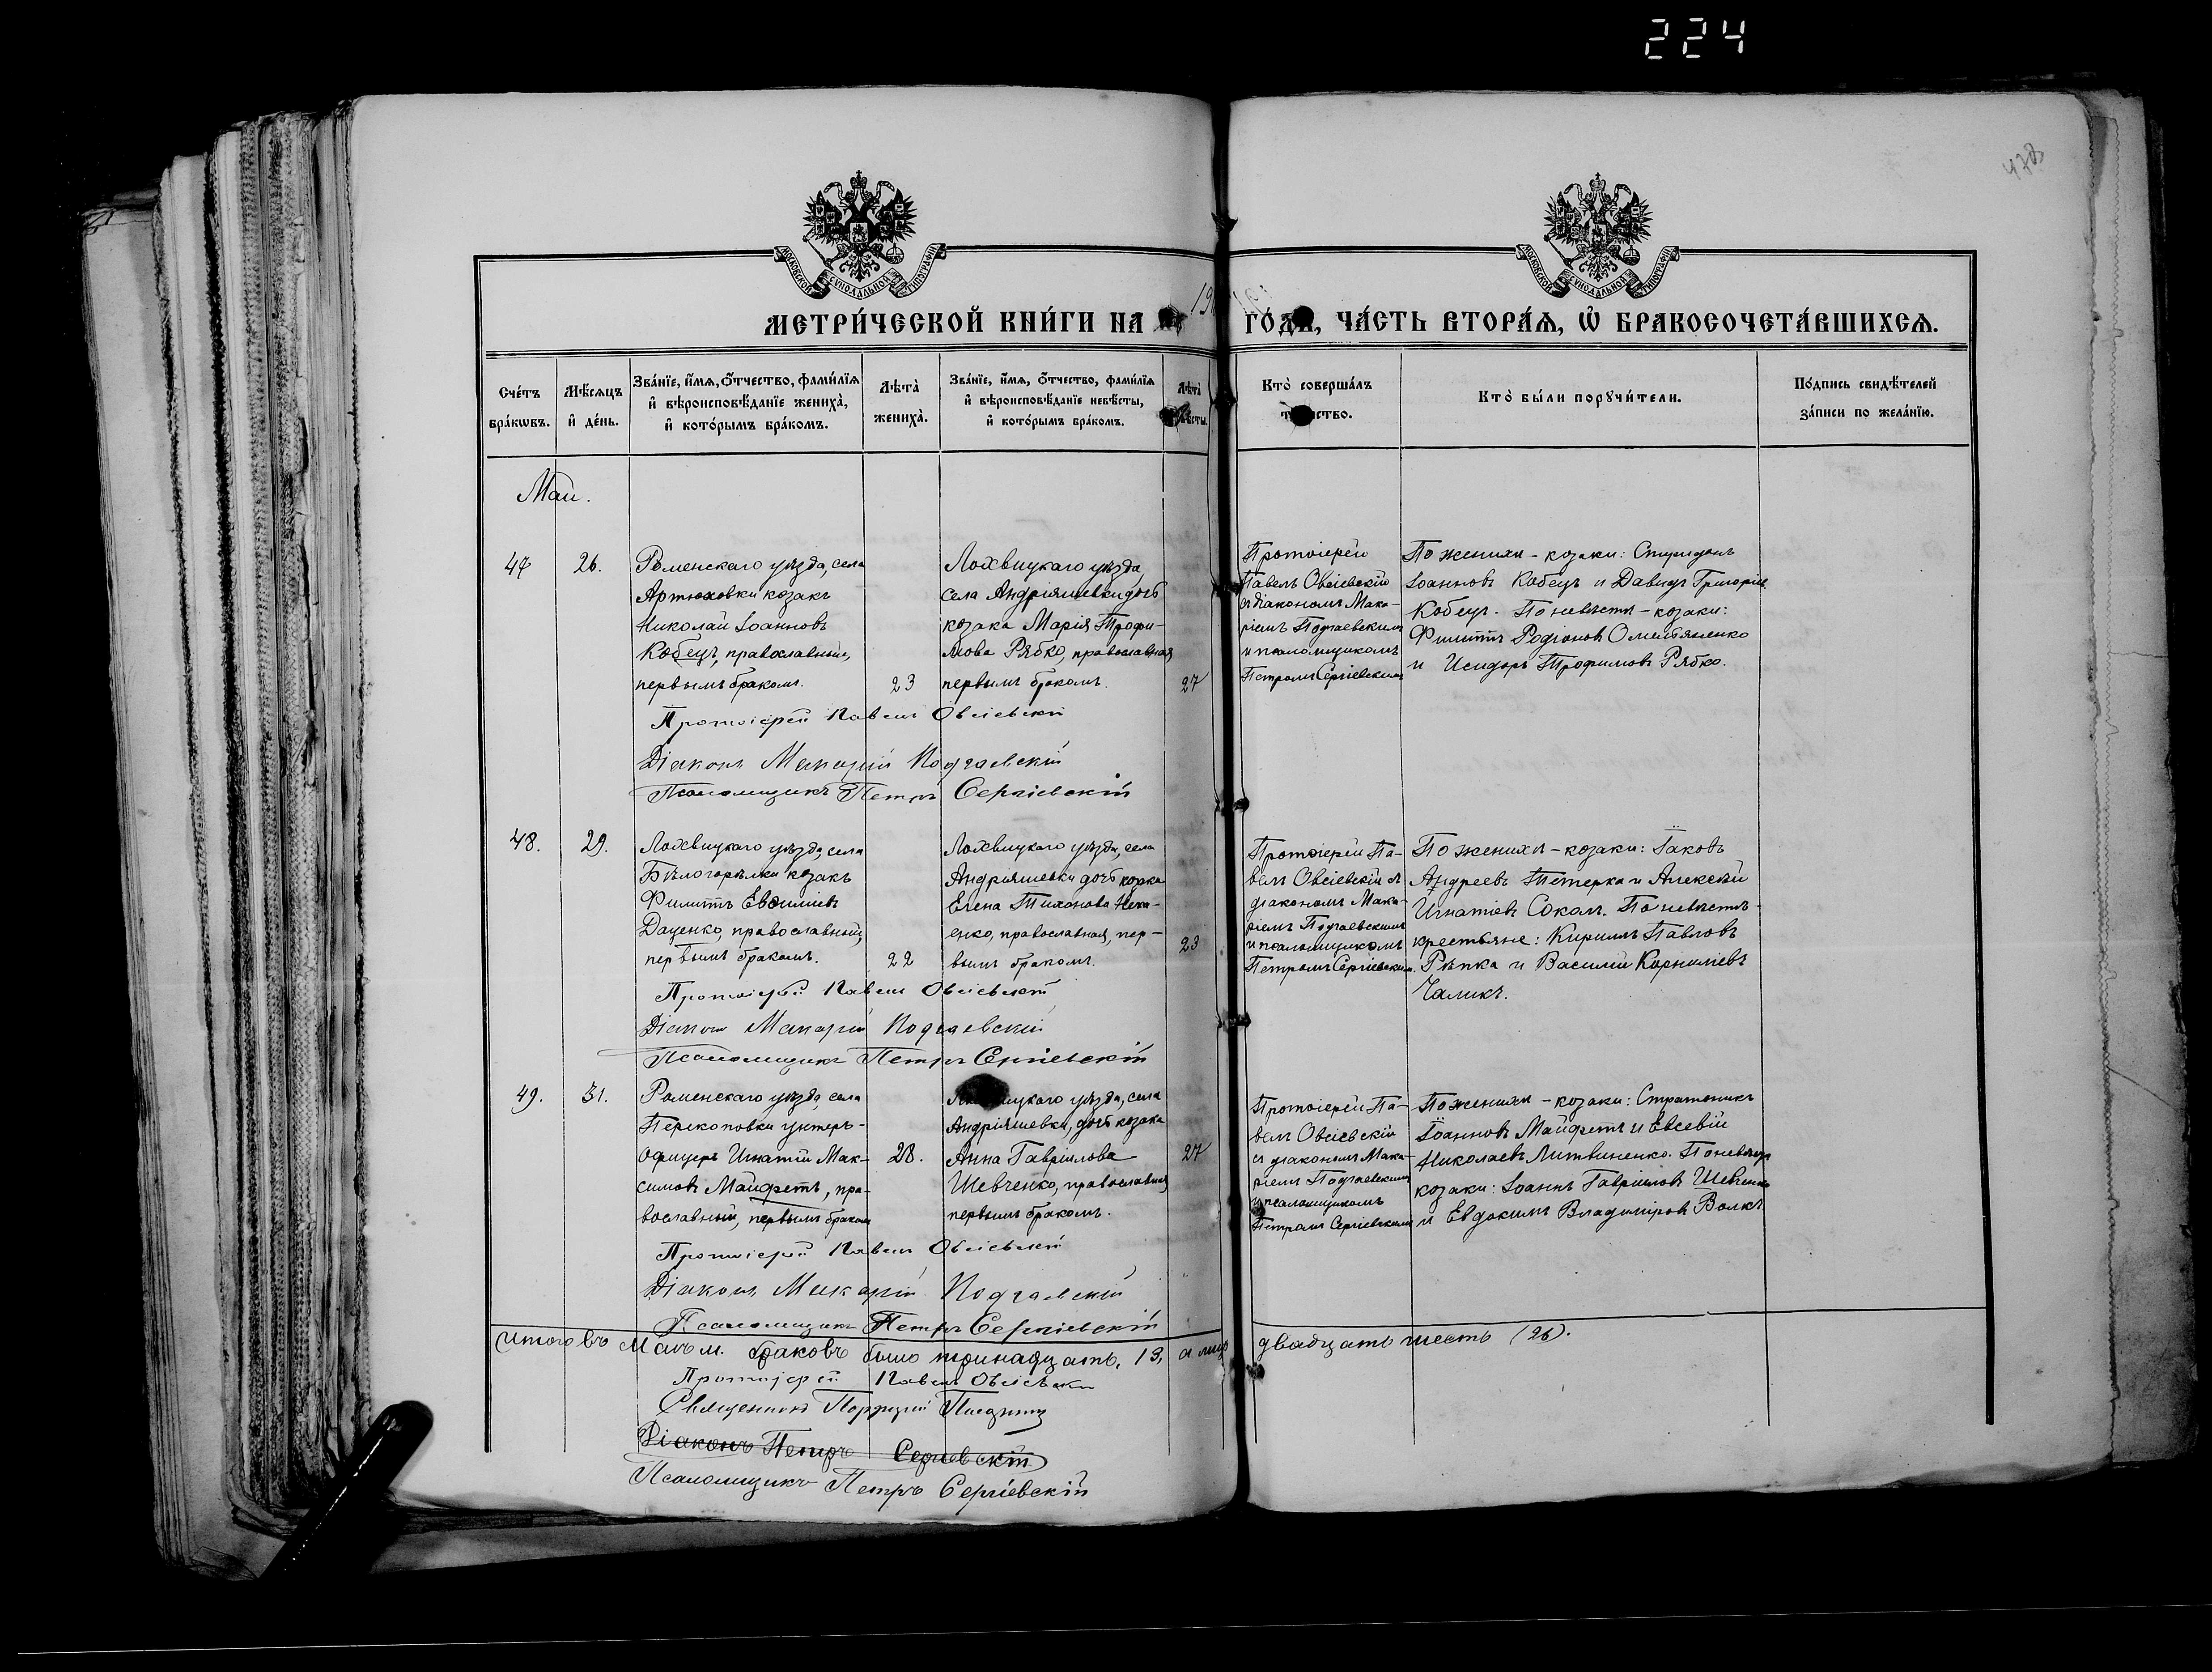 224
478
МОСКОВСКОЙ СѴНОДАЛЬНОЙ ТИПОГРАФІИ
МОСКОВСКОЙ СѴНОДАЛЬНОЙ ТИПОГРАФІИ
МЕТРИ́ЧЕСКОЙ КНИ́ГИ НА 19 ГО́ДЪ, ЧА́СТЬ ВТОРА́Ѧ, Ѡ҆ БРАКОСОЧЕТА́ВШИХСѦ.
Сче́тъ бра́кωвъ.
Мѣ́сѧцъ и҆ де́нь.
Зва́нїе, и҆́мѧ, ѻ҆́тчество, фами́лїѧ
и҆ вѣроисповѣ́данїе жениха̀,
и҆ кото́рымъ бра́комъ.
Лѣта̀ жениха̀.
Зва́нїе, и҆́мѧ, ѻ҆́тчество, фами́лїѧ
и҆ вѣроисповѣ́данїе невѣ́сты,
и҆ кото́рымъ бра́комъ.
Лѣта̀
Кто̀ соверша́лъ
Кто̀ бы́ли порꙋчи́тели.
По́дпись свидѣ́телей
за́писи по жела́нїю.
Май.
47
26.
Роменскаго уѣзда, села
Артюховки козакъ
Николай Іоанновъ
Кобецъ, православный,
первымъ бракомъ.
23
Лохвицкаго уѣзда
села Андріяшевки дочь
козака Марія Трофи-
мова Рябко, православная
первымъ бракомъ.
27
Протоіерей
Павелъ Овсіевскій
съ діакономъ Мака-
ріемъ Подгаевскимъ
и псаломщикомъ
Петромъ Сергіевскимъ
По женихѣ - козаки: Спиридонъ
Іоанновъ Кобецъ и Давидъ Григоріев
Кобецъ. По невѣстѣ - козаки:
Филиппъ Родіоновъ Омельяненко
и Исидоръ Трофимовъ Рябко.
Протоіерей Павелъ Овсіевскій
Діаконъ Макарій Подгаевскій
Псаломщикъ Петръ Сергіевскій
48.
29.
Лохвицкаго уѣзда, села
Бѣлогорѣлки козакъ
Филиппъ Евфиміевъ
Даценко, православный,
первымъ бракомъ.
22
Лохвицкаго уѣзда, села
Андріяшевки дочь козака
Елена Тихонова
енко, православная, пер-
вымъ бракомъ.
23
Протоіерей Па-
велъ Овсіевскій съ
діакономъ Мака-
ріемъ Подгаевскимъ
и псаломщикомъ
Петромъ Сергіевским.
По женихѣ - козаки: Іаковъ
Андреевъ Тетерка и Алексѣй
Игнатіевъ Сокол. По невѣстѣ -
крестьяне: Кириллъ Павловъ
Рѣпка и Василій Корниліевъ
Чаликъ.
Протоіерей Павелъ Овсіевскій
Діаконъ Макарій Подгаевскій
Псаломщикъ Петръ Сергіевскій
49.
31.
Роменскаго уѣзда, села
Перекоповки унтеръ-
офицеръ Игнатій Мак-
симовъ Майфетъ, пра-
вославный, первымъ бракомъ
28.
Лохвицкаго уѣзда, села
Андріяшевки, дочь козака
Анна Гавріилова
Шевченко, православная
первымъ бракомъ.
27
Протоіерей Па-
велъ Овсіевскій
съ діакономъ Мака-
ріемъ Подгаевскимъ
и псаломщикомъ
Петромъ Сергіевскимъ
По женихѣ - козаки: Стратоникъ
Іоанновъ Майфетъ и Евсевій
Николаевъ Литвиненко. По невѣстѣ
козаки: Іоаннъ Гавріиловъ Шевченко
и Евдокимъ Владиміровъ Волкъ
Протоіерей Павелъ Овсіевскій
Діаконъ Макарій Подгаевскій
Псаломщикъ Петръ Сергіевскій
Итого въ Маѣ м. браковъ было тринадцать, 13, а лицъ двадцать шесть (26).
Протоіерей Павелъ Овсіевскій
Священникъ Порфирій
Діаконъ Петръ Сергіевскій
Псаломщикъ Петръ Сергіевскій